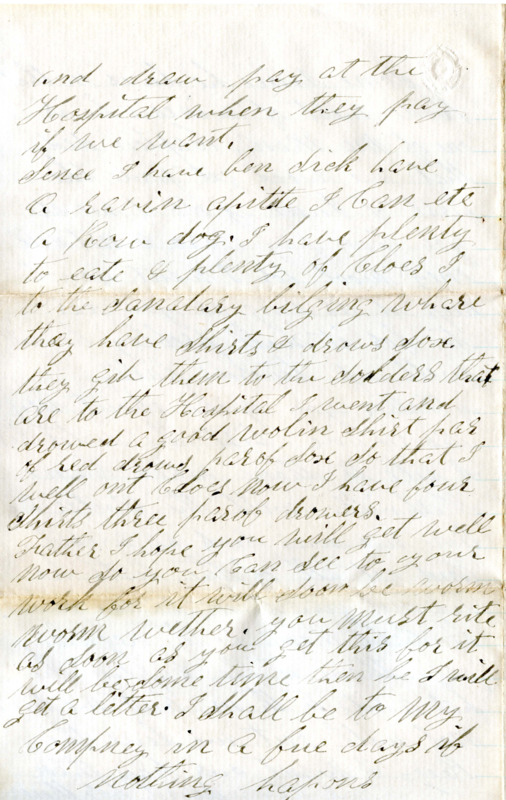 and draw pay at the
Hospital when they pay
if we want.
Sence I have ben sick have
a ravin apitte I Can ete
a Row dog. I have plenty
to eate & plenty of Cloes I
to the Sanatary bilging whare
thay have Shirts & drows Sox
they gib them to the Solders that
are to the Hospital I went and
drowed a good wolin Shirt par
of red drows par of Sox So that I
well ont Cloes now I have four
Shirts three par of drowers.
Father I hope you will get well
now so you Can See to your
work for it will soon be worm
worm wether. you must rite
as Soon as you get this for it
will be some time then be I will
get a letter. I shall be to my
Compney in a fue days if
nothing hapons